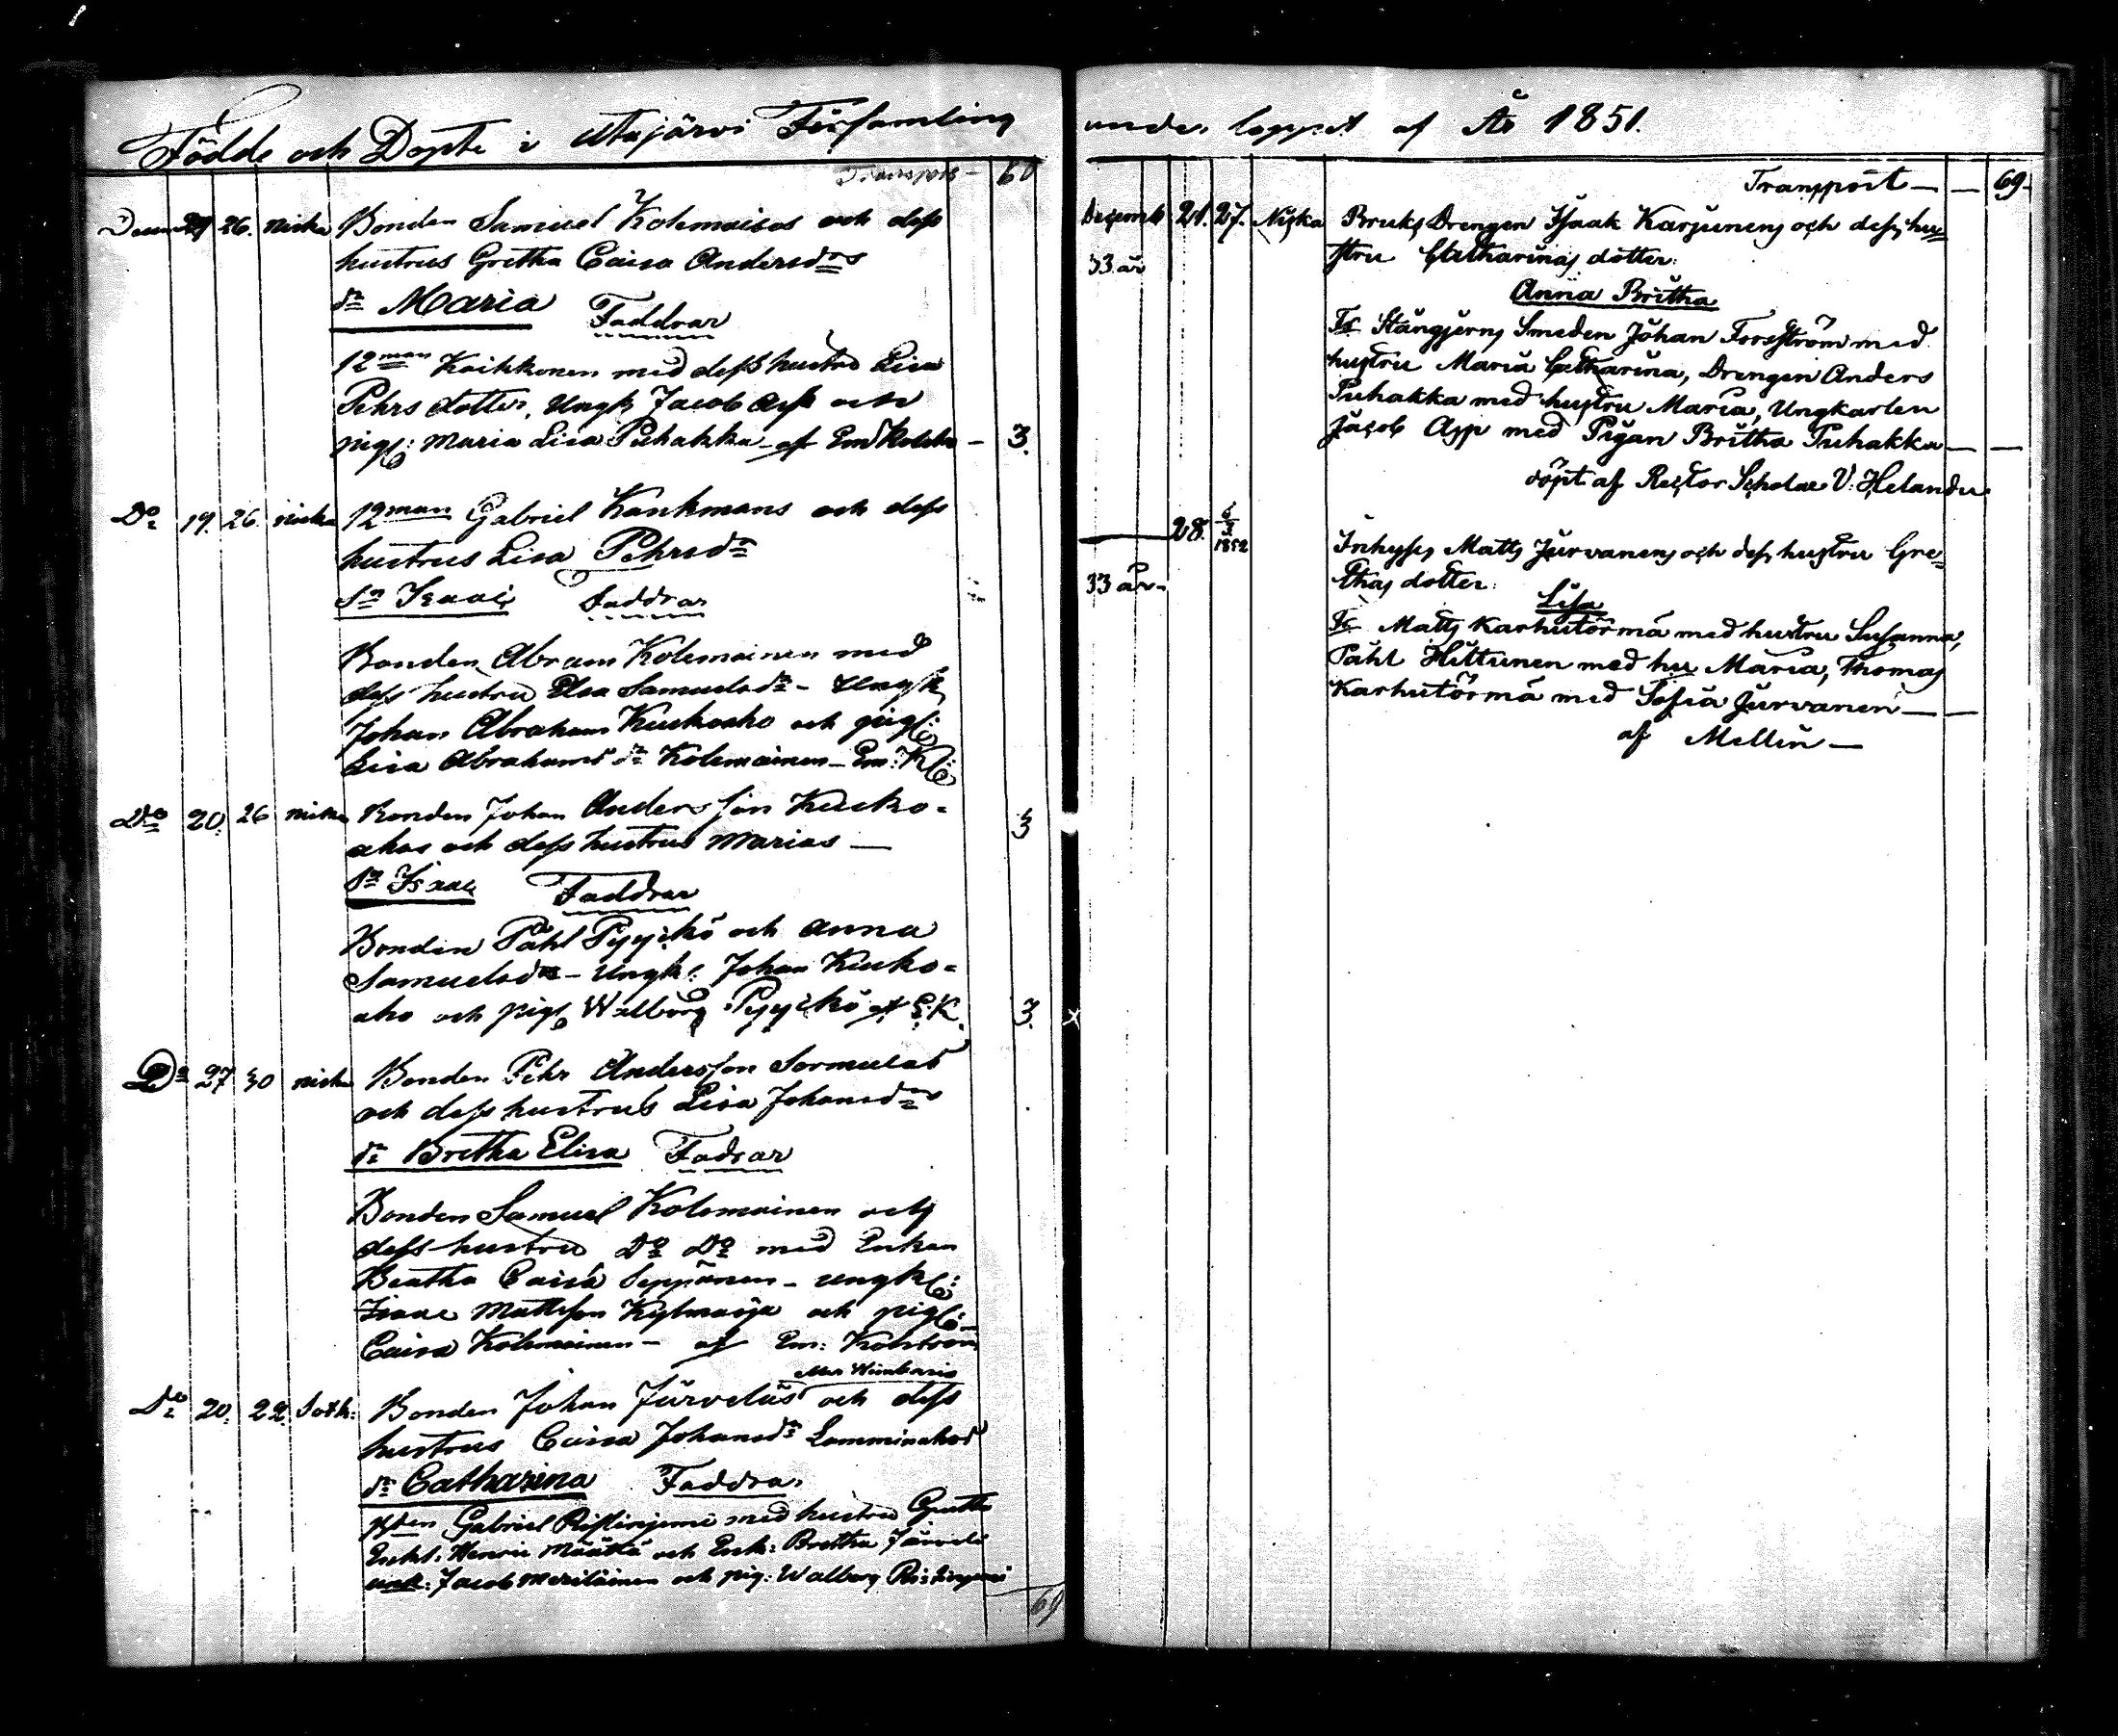 Födde och Döpte i Utajärvi Församling
60
26. niska Bonden Samuel Kolemaisas och dess
hustrus Gretha Caisa Andersdrs
dr Maria Faddrar
12man Koikkonen med dess hustru Lisa
Pehrs dotter, Ungk Jacob och
pig: Maria Lisa Puhakka af Em — 3.
Do 19. 26. niska 12man Gabriel och dess
hustrus Lisa Pehrsdr
Sn Isaac Faddrar
Bonden Abram Kolemainen med
dess hustru Elsa Samuelsdr - Ungk
Johan Abraham Kuckoaho och pig:
Lisa Abrahamsdr Kolemainen — Em: K
Do 20. 26 niska Bonden Johan Andersson Kucko-
ahos och dess hustrus Marias —
3
Sn Isaac Faddrar
Bonden Påhl Pyyckö och Anna
Samuelsdr - Ungk: Johan Kucko-
aho och pig Walborg Pyyckö af E.K. 3.
Do 27 30 niska Bonden Pehr Andersson Sormulas
och dess hustrus Lisa Johansdrs
dr Bretha Elisa Fadrar
Bonden Samuel Kolemainen och
dess hustru Do Do med Enkan
Beatha Caisa Seppänen - ungk:
Isaac Mattsson Kylmäoja och pig:
Caisa Kolemainen — af Em:
Do 20. 22. Sotk: Bonden Johan Järveläs och dess
hustrus Caisa Johansdr Lamminahos
dr Catharina Faddrar
Gabriel Ristinjemi med hustru Gretha
Enkl: Henric Määttä och Enk: Bretha Järvelä
unk: Jacob Meriläinen och pig: Walborg Ristinjemi
69
under loppet af År 1851.
Transport — — 69
Decemb 21. 27. Niska Bruks Drengen Isaak Karjunens och dess hu=
33 år stru Catharinas dotter:
Anna Britha
Fr Stångjerns Smeden Johan Forsström med
hustru Maria Catharina, Drengen Anders
Puhakka med hustru Maria, Ungkarlen
Jacob Asp med Pigan Britha Puhakka — —
döpt af Rector Scholae V. Helander
— 28. 6/3 1852 Inhyses Matts Jurvanens och dess hustru Gre=
33 år. thas dotter:
Lisa
Fr Matts Karhutörmä med hustru Susanna,
Påhl Hiltunen med hu Maria, Thomas
Karhutörmä med Sofia Jurvanen — —
af Mellin —